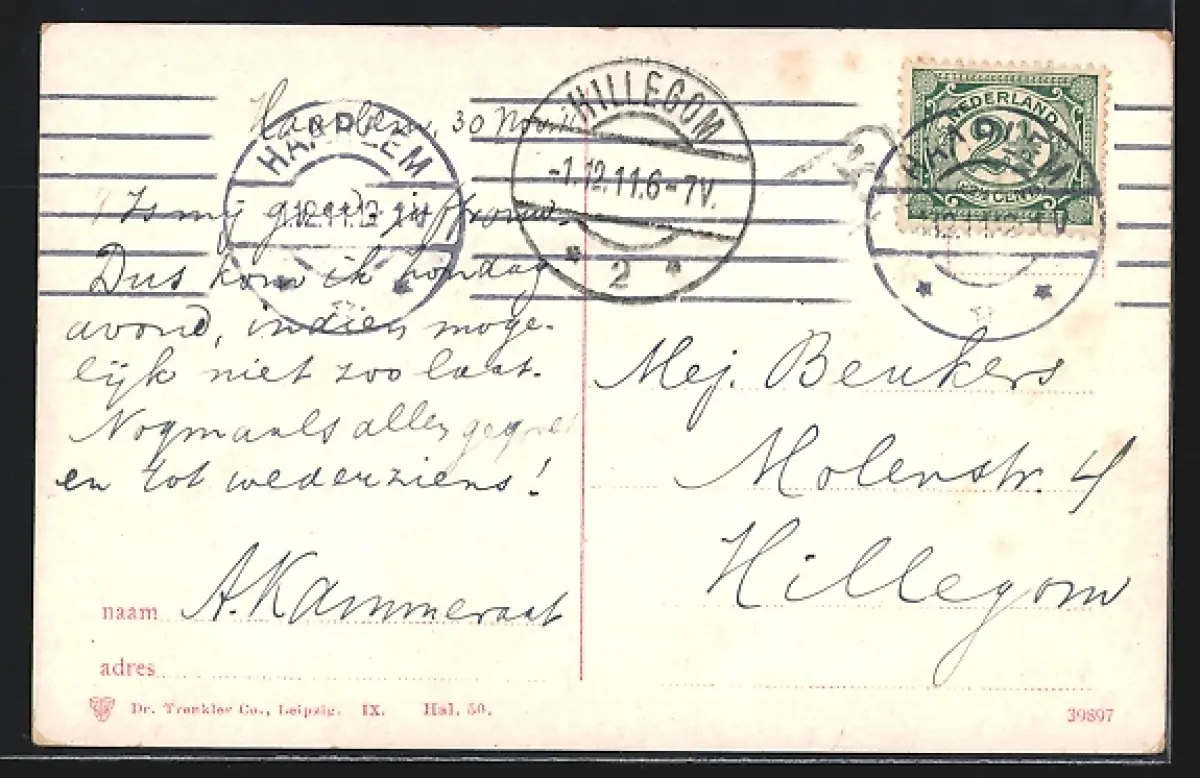 Haarlem, 30 Nov. 11
Is mij goed juffrouw.
Dus kom ik Zondag
avond, indien moge-
lijk niet zoo laat.
Nogmaals allen gegroet
en tot wederziens!
naam A. Kammeraat
adres
Dr. Trenkler Co., Leipzig. IX. Hal. 50.
HAARLEM
HILLEGOM
-1.12.11.6-7V.
2
NEDERLAND
2½
2½ CENT
HAARLEM
Mej. Beukers
Molenstr. 4
Hillegom
39897